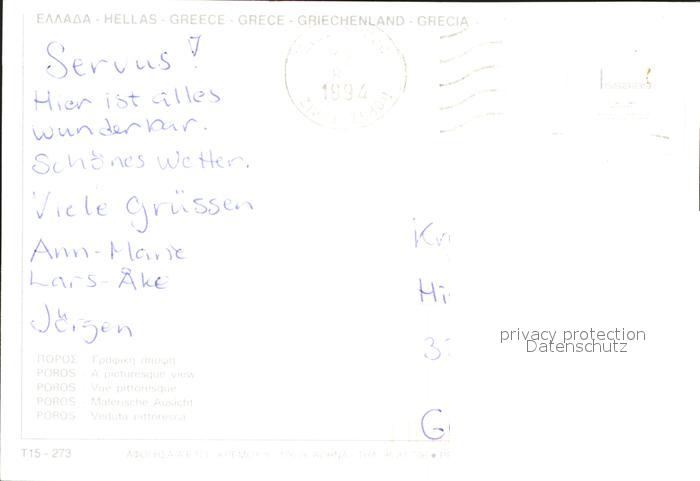 ΕΛΛΑΔΑ - HELLAS - GREECE - GRECE - GRIECHENLAND - GRECIA -
1994
Servus!
Hier ist alles
wunderbar.
Schönes Wetter.
Viele Grüssen
Ann-Marie
Lars-Åke
Jörgen
Kr
Hi
3
G
privacy protection
Datenschutz
ΠΟΡΟΣ - Γραφική άποψη
POROS - A picturesque view
POROS - Vue pittoresque
POROS - Malerische Ansicht
POROS - Veduta pittoresca
T15 - 273